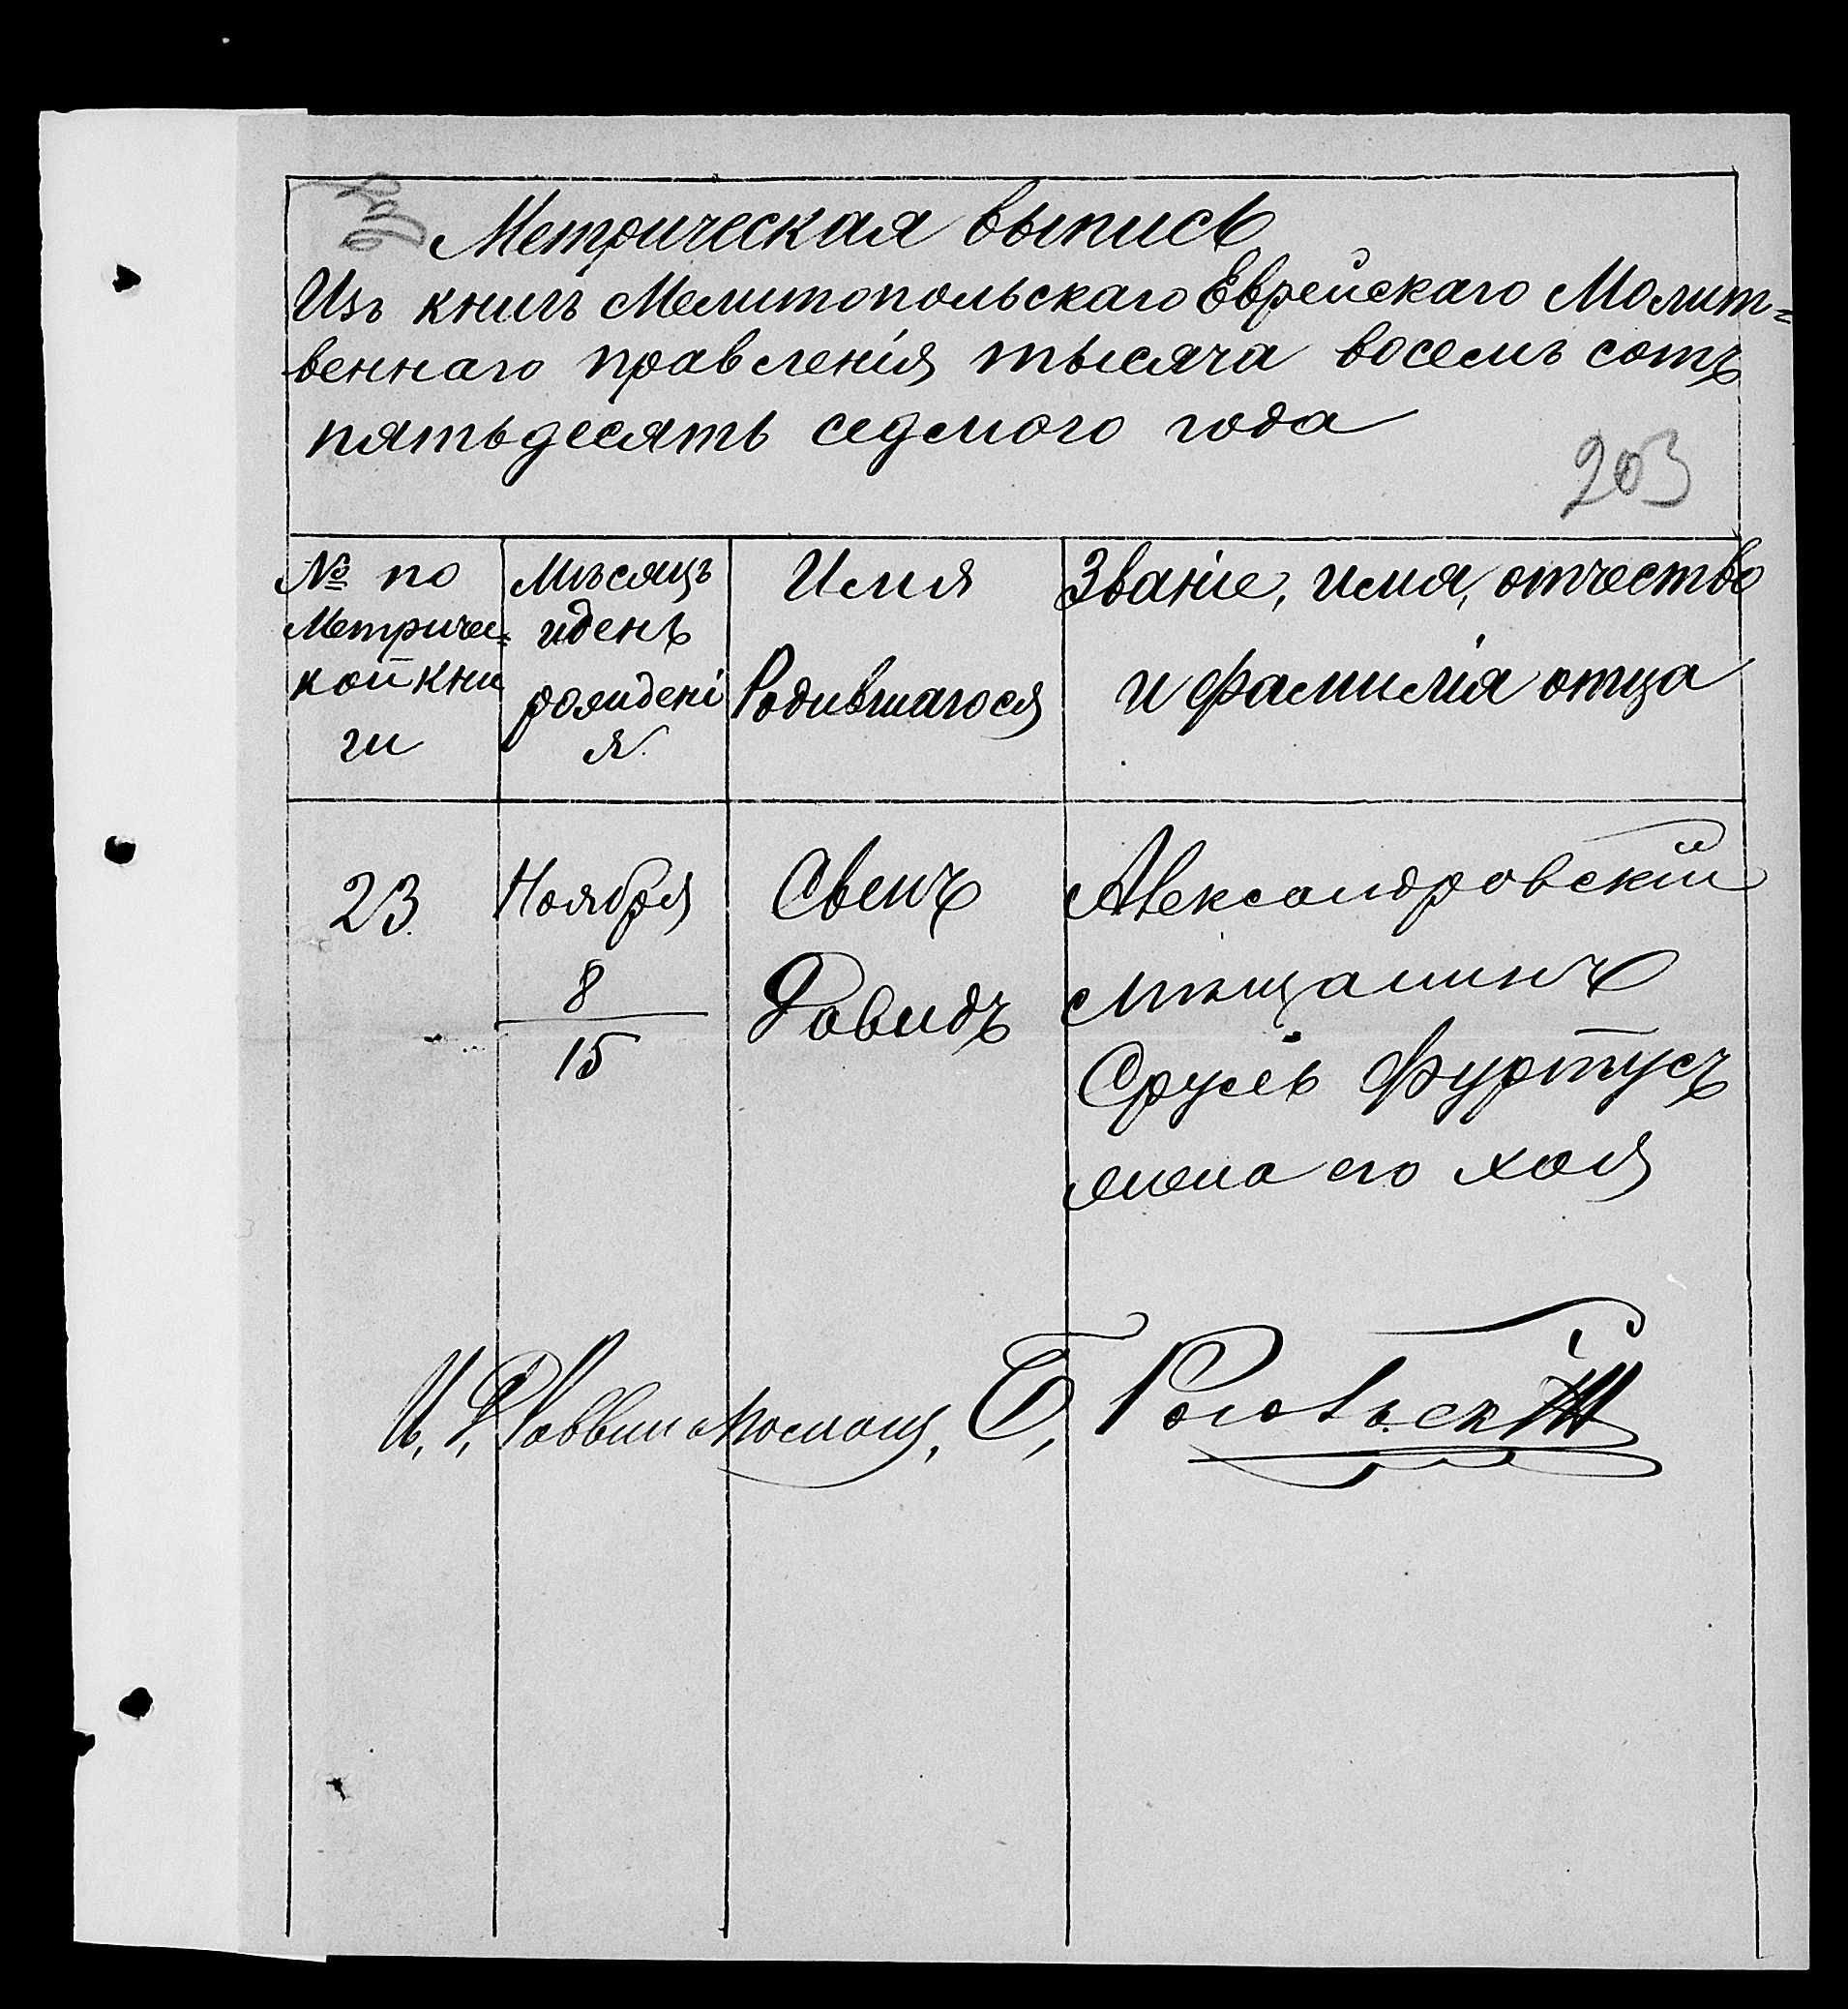 Метрическая выпись
Изъ книгъ Мелитопольскаго Еврейскаго Молит=
веннаго правленія тысяча восемъ сотъ
пятьдесять седмого года
203
№ по
Метричес=
кой кни
ги
Мѣсяцъ
и день
рожидені
я.
Имя
Родившагося
Званіе, имя, отчество
и фамилія отца
23.
Ноября
8
15
Сынъ
Давидъ
Александровскій
мѣщанинъ
Сруль Фуртусъ
жена его Хая
И, Д, Раввин Б,